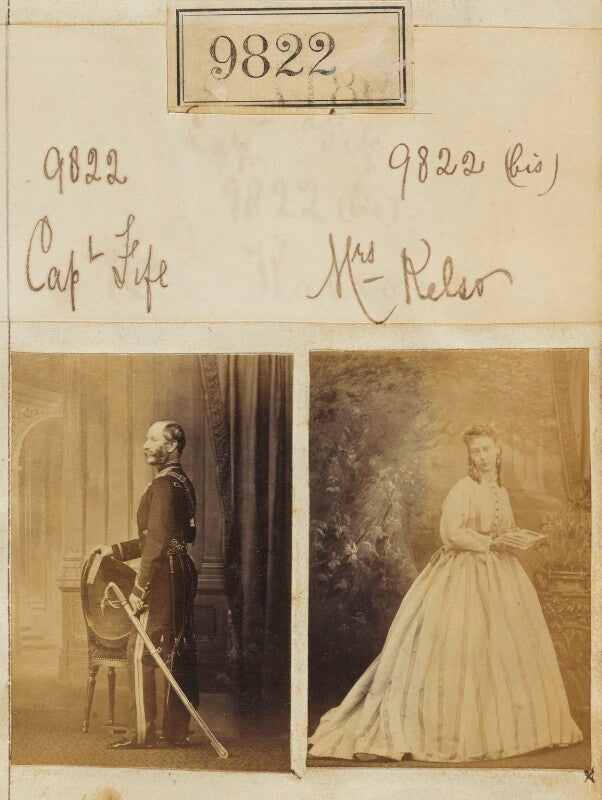 9822
9822
9822 (bis)
Capt Fife
Mrs Kelso
x